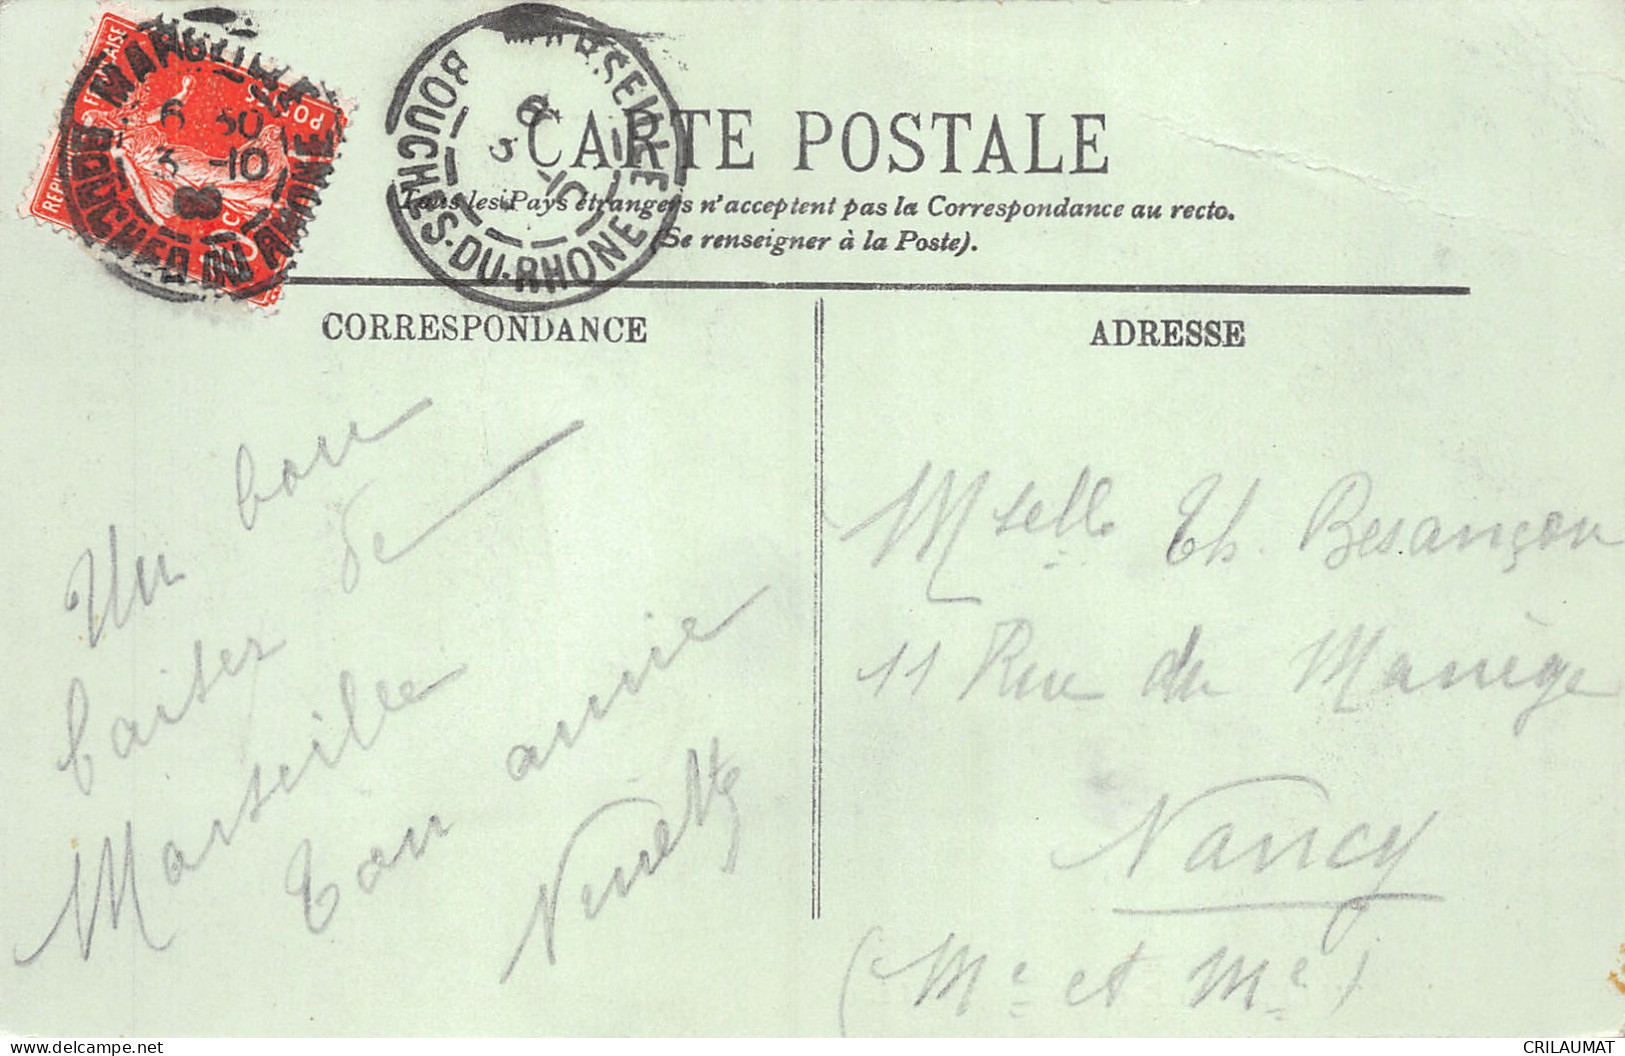 REPUBLIQUE FRANÇAISE
POSTES
MARSEILLE
6 30
3 -10
BOUCHES DU RHONE
MARSEILLE
6
3 -10
BOUCHES-DU-RHONE
CARTE POSTALE
Tous les Pays étrangers n'acceptent pas la Correspondance au recto.
(Se renseigner à la Poste).
CORRESPONDANCE
Un bon
baiser de
Marseille
Ton amie
Ninette
ADRESSE
Mselle Th. Besançon
11 Rue du Manège
Nancy
(Me et Me)
CRILAUMAT